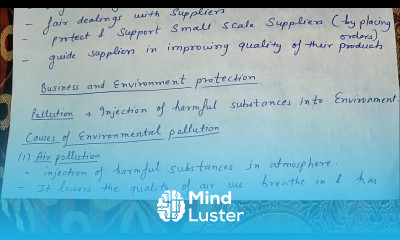 - fair dealings with Suppliers
- protect & Support Small Scale Suppliers (by placing orders)
- guide suppliers in improving quality of their products
Business and Environment protection
Pollution → Injection of harmful substances into Environment.
Causes of Environmental pollution
(1) Air pollution
- injection of harmful substances in atmosphere.
- It lowers the quality of air we breathe in & has
Mind
Luster